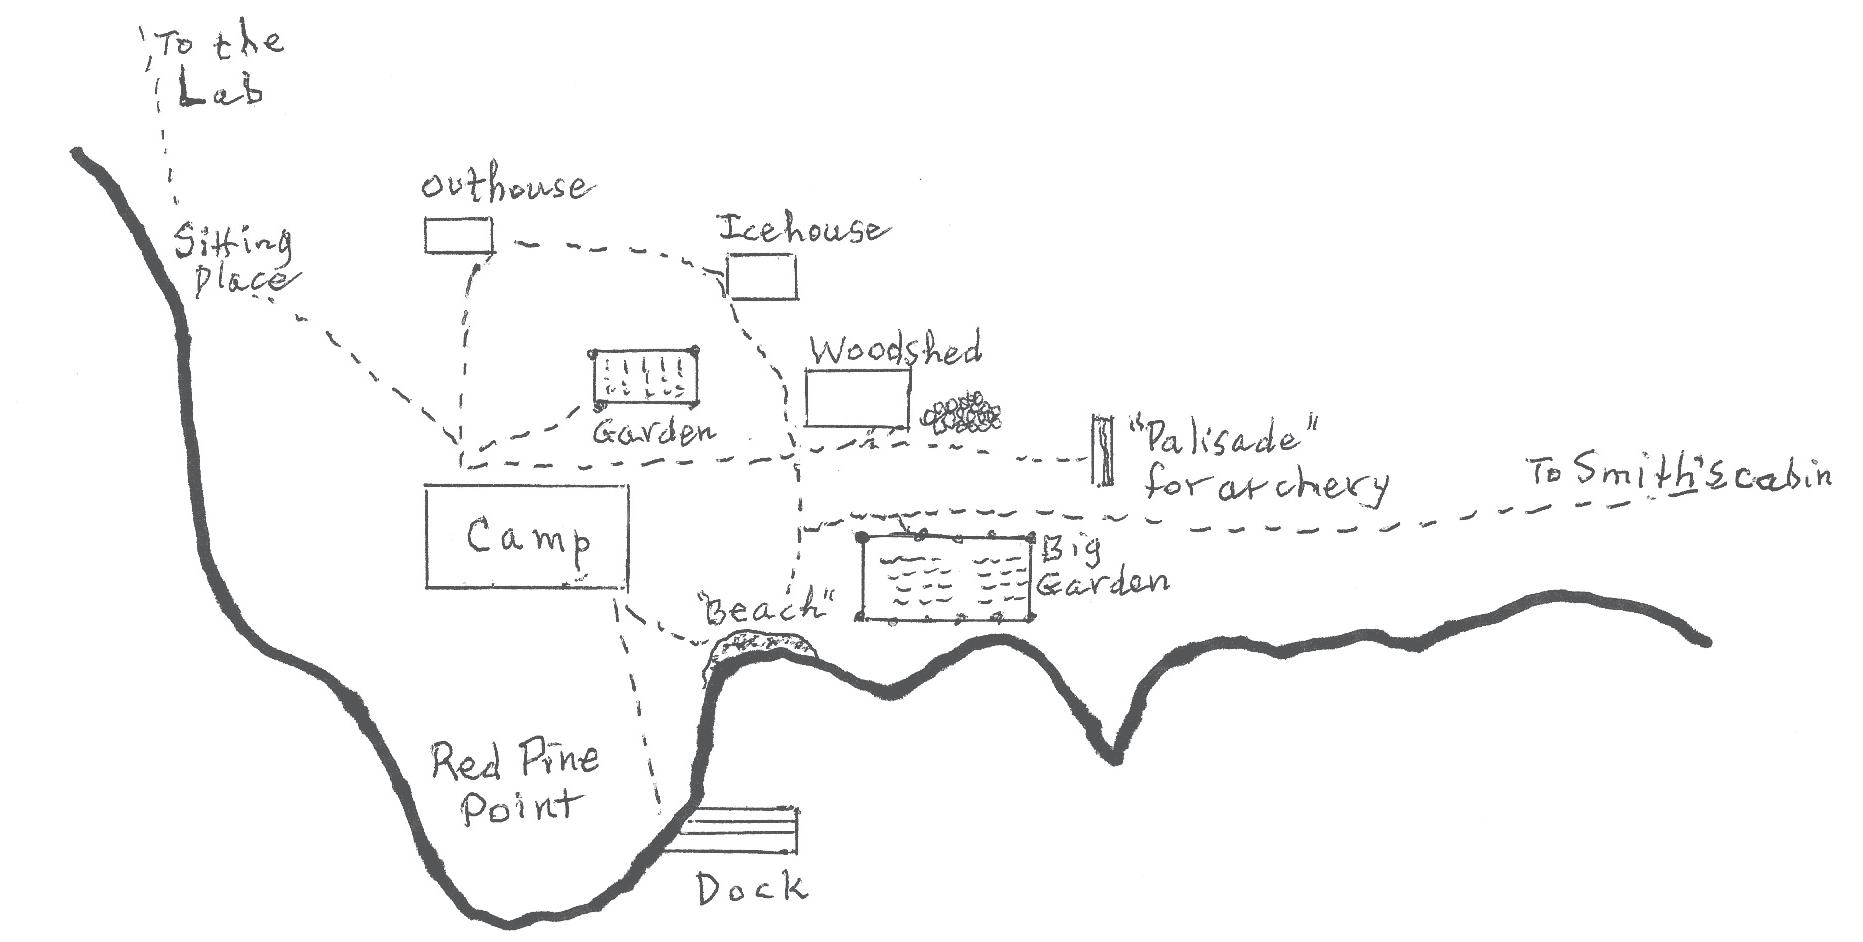 To the
Lab
Outhouse
Icehouse
Sitting
Place
Woodshed
Garden
"Palisade"
for archery
To Smith's cabin
Camp
Big
Garden
"Beach"
Red Pine
Point
Dock